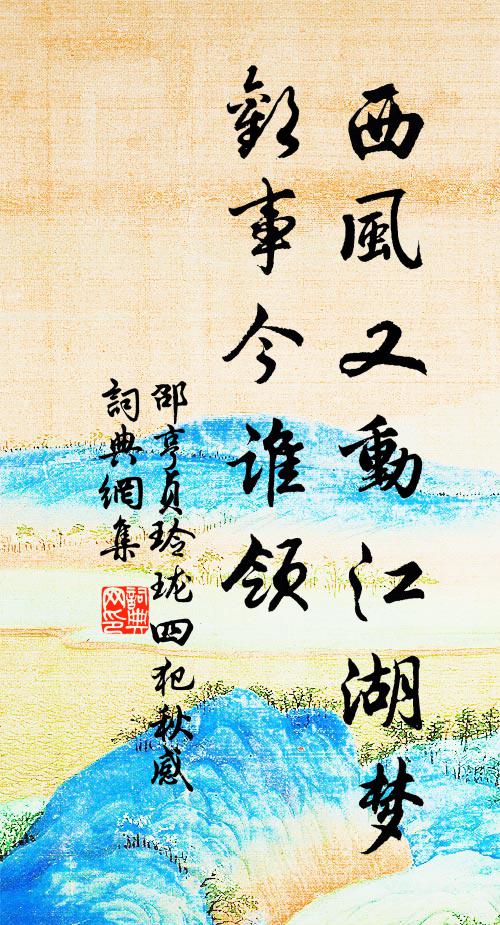 西風又動江湖梦
歡事今誰領
邵亨貞玲珑四犯秋感
詞典網集
詞典网印